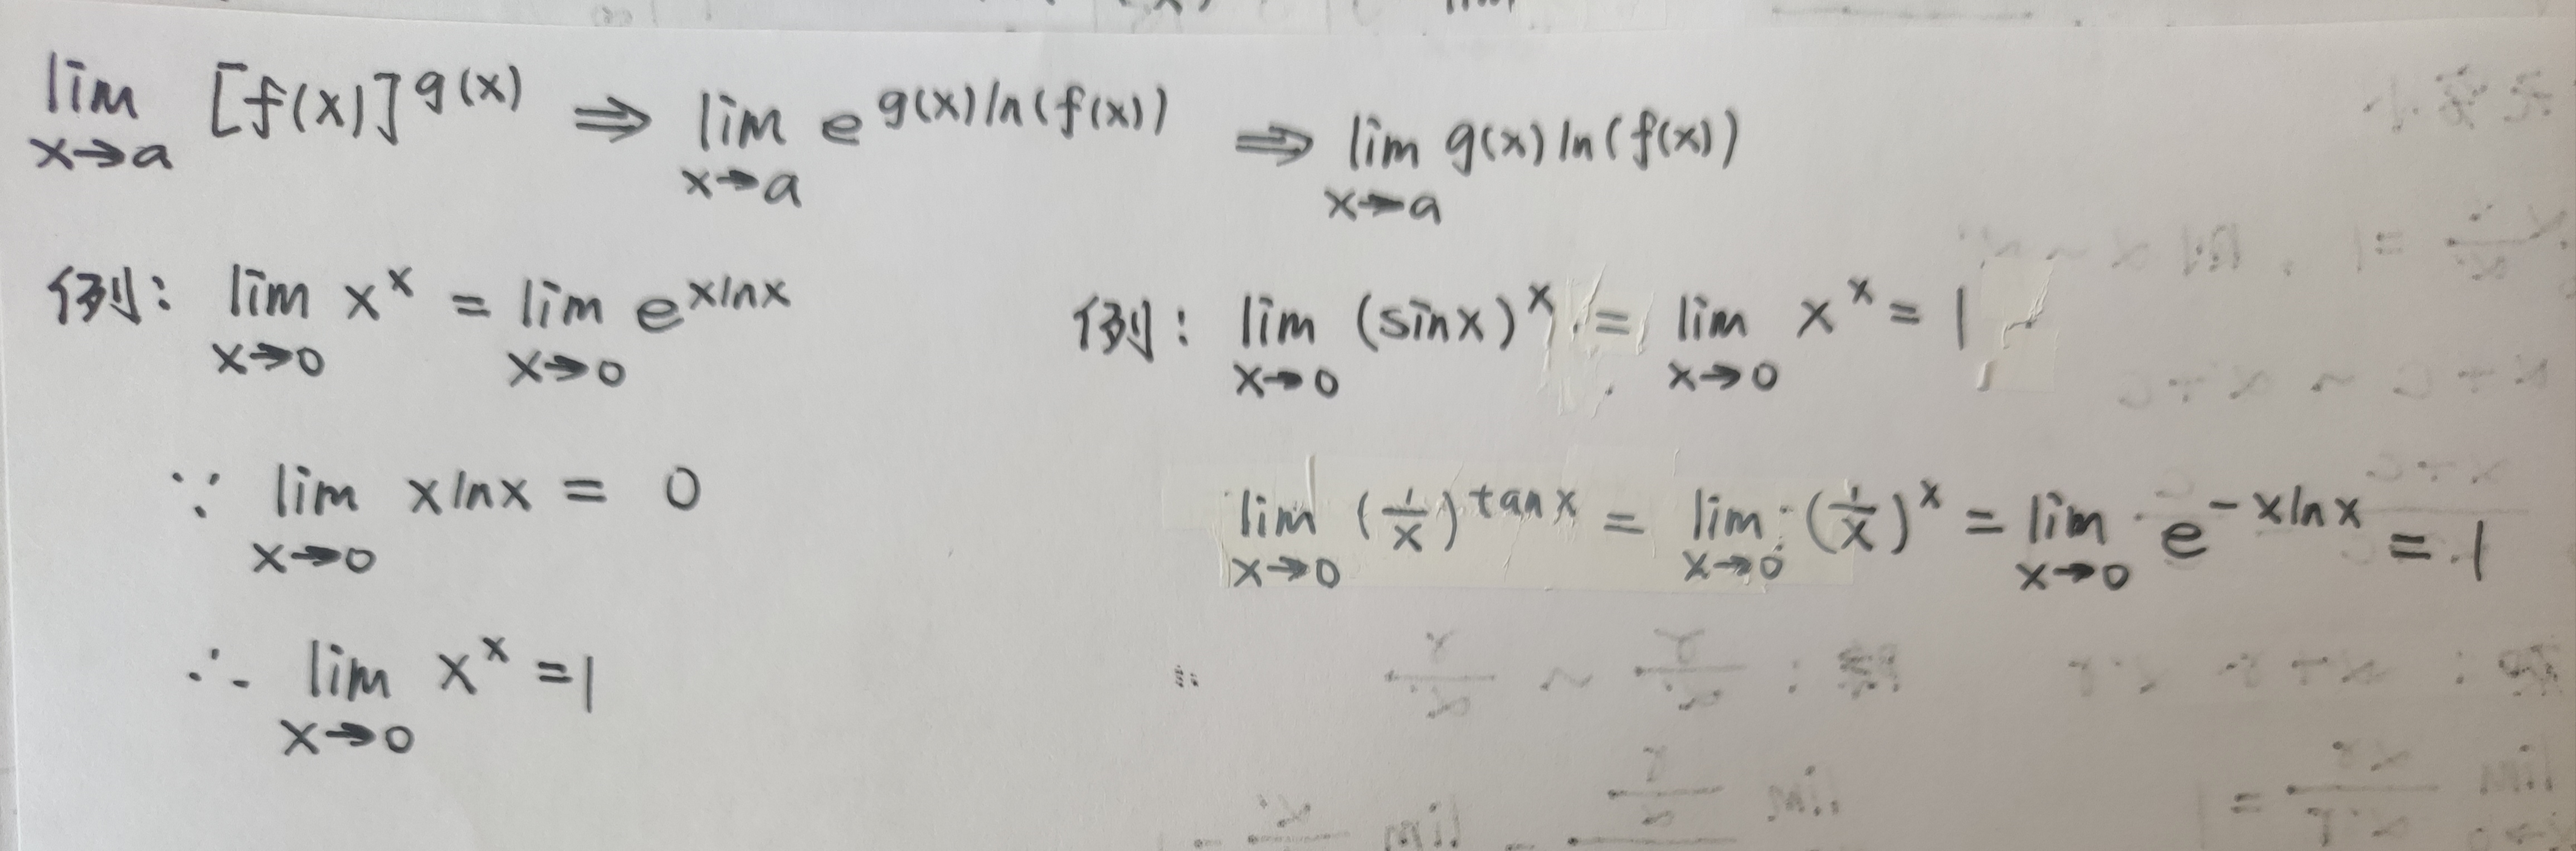 lim x→a [f(x)]^g(x) ⇒ lim x→a e^g(x)ln(f(x)) ⇒ lim x→a g(x)ln(f(x))
例: lim x→0 x^x = lim x→0 e^xlnx
∵ lim x→0 xlnx = 0
∴ lim x→0 x^x =1
例: lim x→0 (sinx)^x = lim x→0 x^x = 1
lim x→0 (1/x)^tanx = lim x→0 (1/x)^x = lim x→0 e^-xlnx = 1